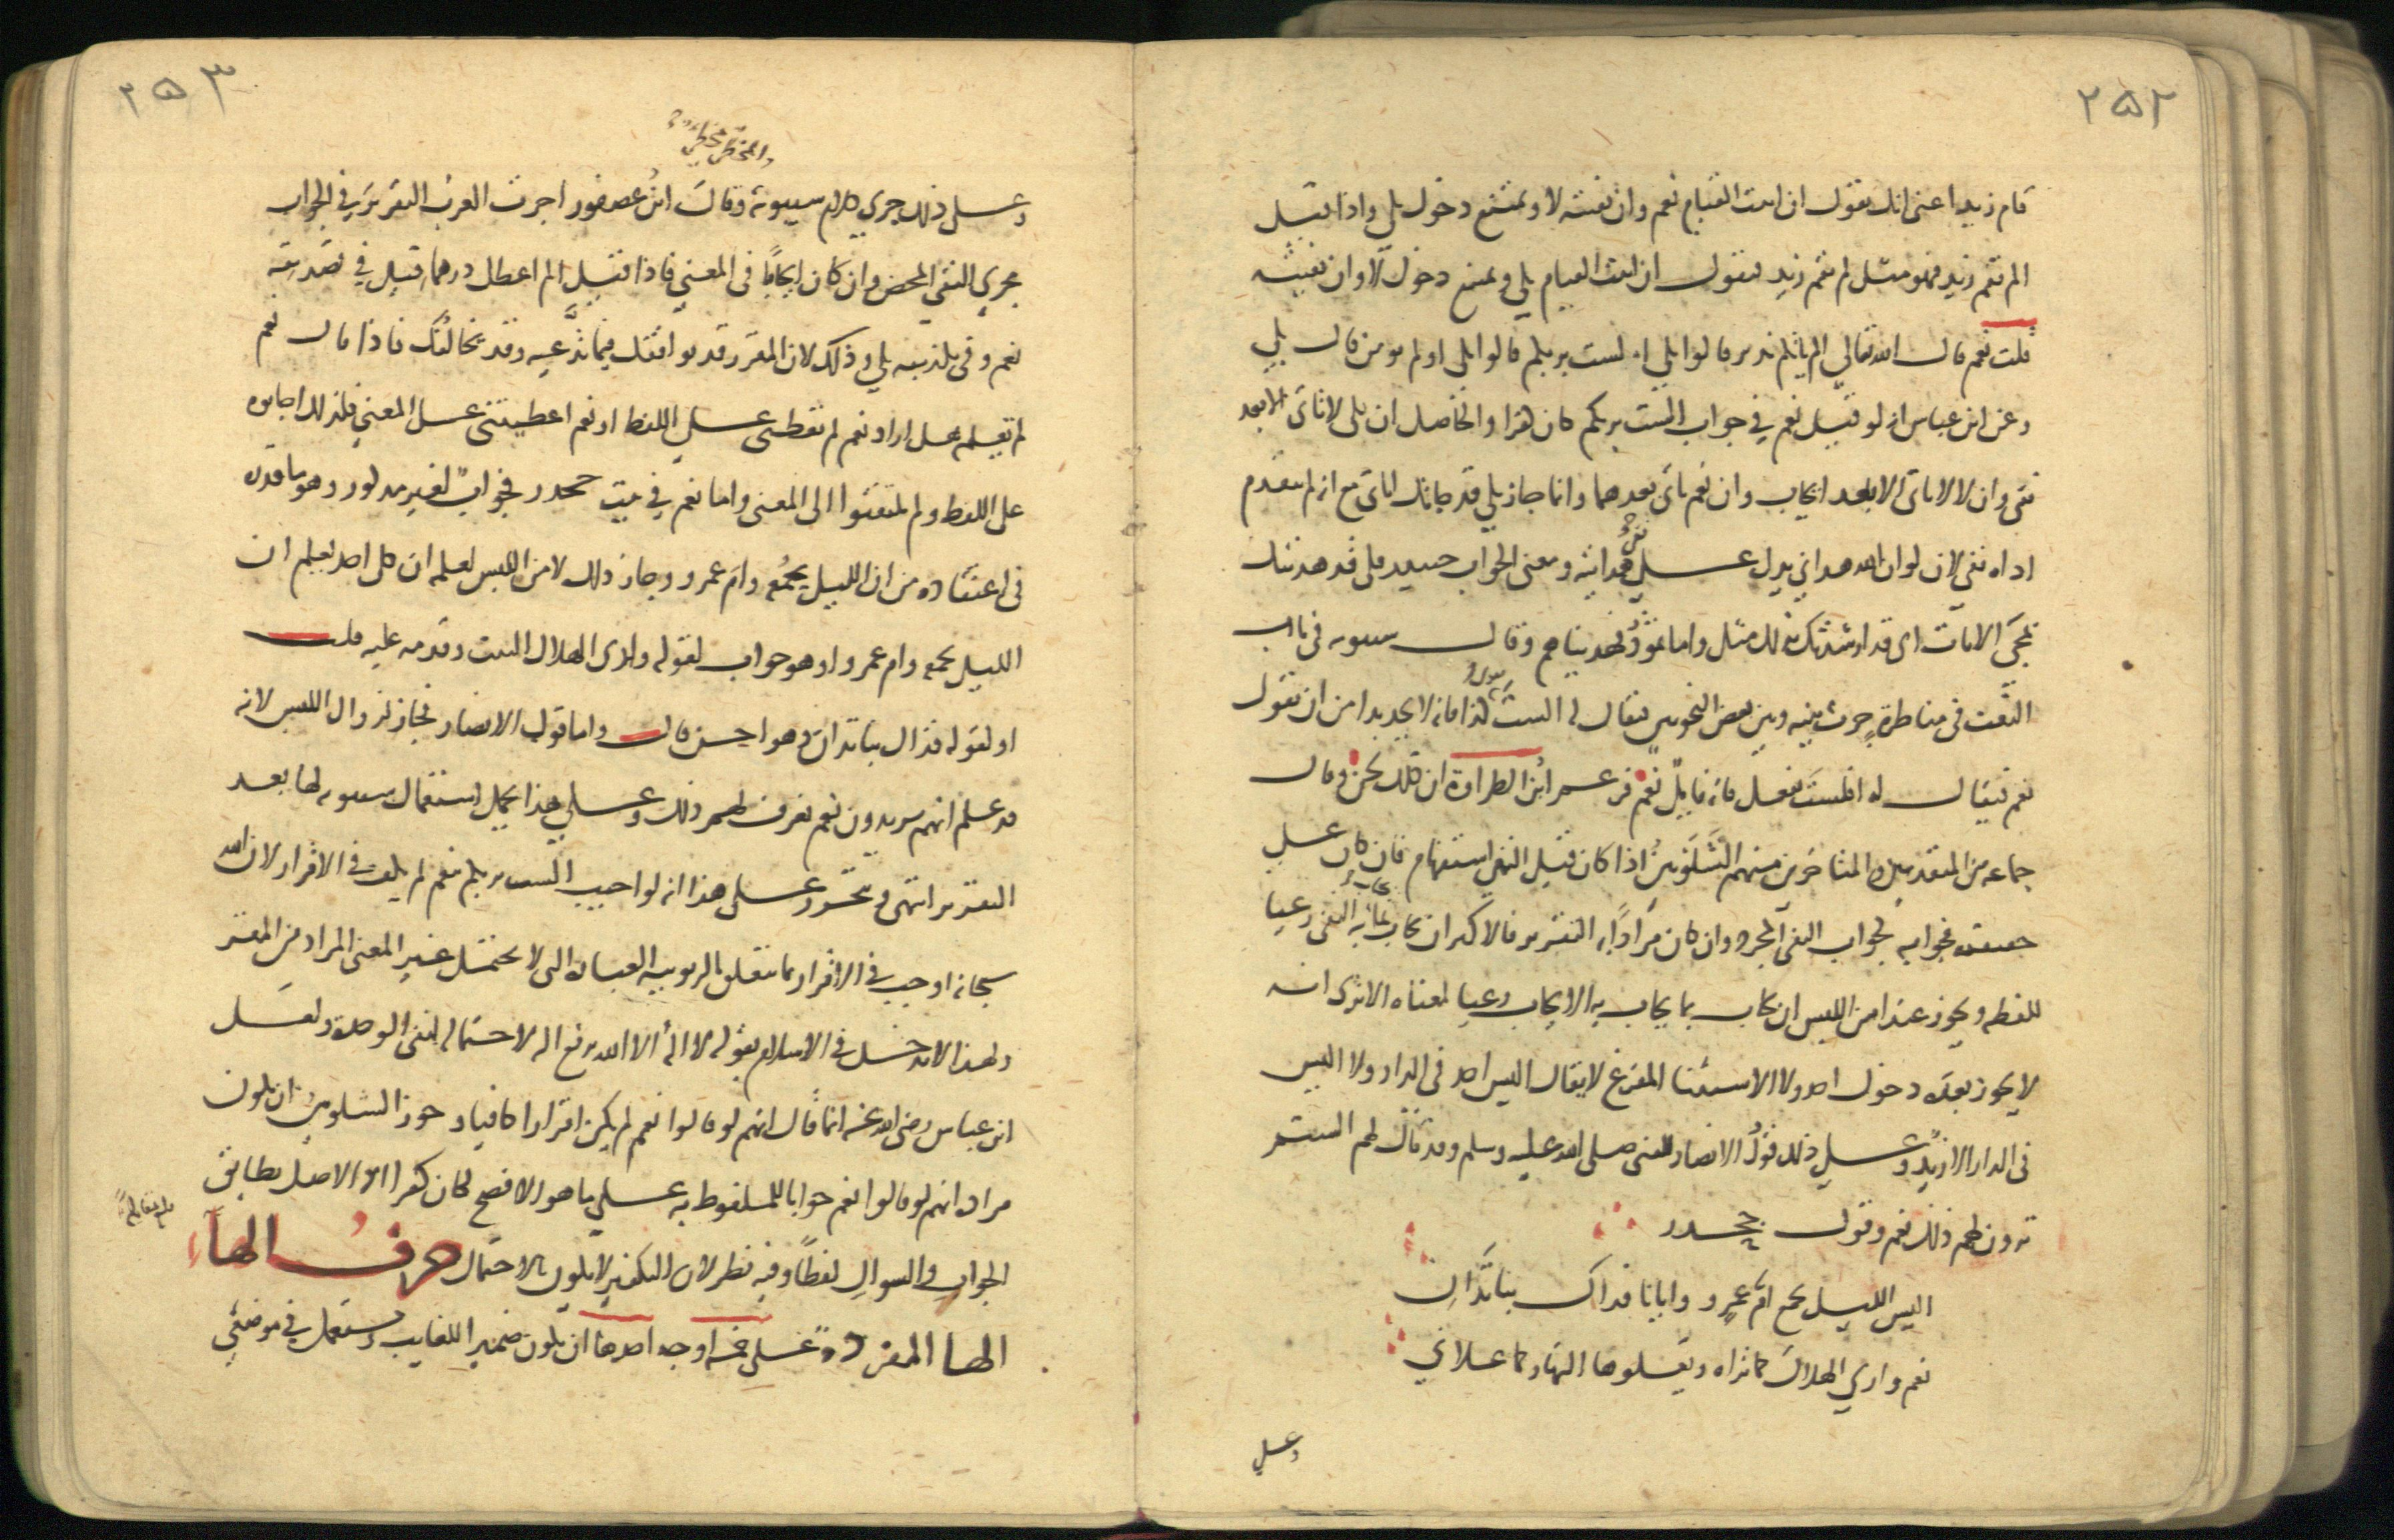 ٢٥٢
قام زيد اعني انك تقول ان اثبت القيام نعم وان نفيته لا ويمتنع دخول بلي واذا قيل
الم يقم زيد فهو مثل لم يقم زيد فتقول ان اثبت القيام بلي ويمتنع دخول لا وان نفيته
قلت نعم قال الله تعالي الم ياتكم نذير قالوا بلي الست بربكم قالوا بلي اولم تومن قال بلي
وعن ابن عباس انه لو قيل نعم في جواب الست بربكم كان كفرا والحاصل ان بلي لا تاتي الا بعد
نفي وان لا لا تاتي الا بعد ايجاب وان نعم تاتي بعدهما وانما جاز بلي قد جاتك اياتي مع انه لم يتقدم
اداه نفي لان لو ان الله هداني يدل علي نفي هدايته ومعني الجواب حينئذ بلي قد هديتك
بمجي الايات اي قد ارشدتك بذلك مثل واما ثمود فهديناهم وقال سيبويه في باب
النعت في مناظرة جرت بينه وبين بعض النحويين فيقال له الست تقول كذا فانه لا يجد بدا من ان يقول
نعم فيقال له افلست تفعل فانه قايل نعم فزعم ابن الطراوة ان ذلك لحن وقال
جماعه من المتقدمين والمتاخرين منهم الشلوبين اذا كان قبل النفي استفهام فان كان علي
حقيقته فجوابه كجواب النفي المجرد وان كان مرادا به التقرير فالاكثر ان يجاب بما يجاب به النفي رعيا
للفظه ويجوز عند امن اللبس ان يجاب بما يجاب به الايجاب رعيا لمعناه الا تري انه
لا يجوز بعده دخول احد ولا الاستثنا المفرغ لا يقال اليس احد في الدار ولا اليس
في الدار الا زيد وعلي ذلك قول الانصار للنبي صلي الله عليه وسلم وقد قال لهم الستم
ترون لهم ذلك نعم وقول جحدر
اليس الليل يجمع ام عمرو وايانا فذاك بنا تدان
نعم واري الهلال كما تراه ويعلوها النهار كما علاني
وعلي
٢٥٣
وعلي ذلك جري كلام سيبويه وقال ابن عصفور اجرت العرب التقرير في الجواب
مجري النفي المحض وان كان ايجابا في المعني فاذا قيل الم اعطك درهما قيل في تصديقه
نعم وفي تكذيبه بلي وذلك لان المقرر قد يوافقك فيما تدعيه وقد يخالفك فاذا قال نعم
لم يعلم هل اراد نعم لم تعطني علي اللفظ او نعم اعطيتني علي المعني فلذلك اجابوه
علي اللفظ ولم يلتفتوا الي المعني واما نعم في بيت جحدر فجواب لغير مذكور وهو ما قدره
في اعتقاده من ان الليل يجمعه وام عمرو وجاز ذلك لامن اللبس لعلمه ان كل احد يعلم ان
الليل يجمعه وام عمرو او هو جواب لقوله واري الهلال البيت وقدمه عليه قلت
او لقوله فذاك بنا تدان وهو احسن قال واما قول الانصار فجاز لزوال اللبس لانه
قد علم انهم يريدون نعم نعرف لهم ذلك وعلي هذا يحمل استعمال سيبويه لها بعد
التقرير انتهي ويتحرر علي هذا انه لو اجيب الست بربكم بنعم لم يكف في الاقرار لان الله
سبحانه اوجب في الاقرار بما يتعلق بالربوبيه العباره التي لا تحتمل غير المعني المراد من المقر
ولهذا لا يدخل في الاسلام بقوله لا اله الا الله برفع اله لاحتماله لنفي الوحدة ولعل
ابن عباس رضي الله عنه انما قال انهم لو قالوا نعم لم يكن اقرارا كافيا وجوز الشلوبين ان يكون
مراده انهم لو قالوا نعم جوابا للملفوظ به علي ما هو الافصح لكان كفرا اذ الاصل تطابق
الجواب والسوال لفظا وفيه نظر لان التكفير لا يكون بالاحتمال حرف الهاء
الها المفردة علي خمسه اوجه احدها ان تكون ضميرا للغايب وتستعمل في موضعي